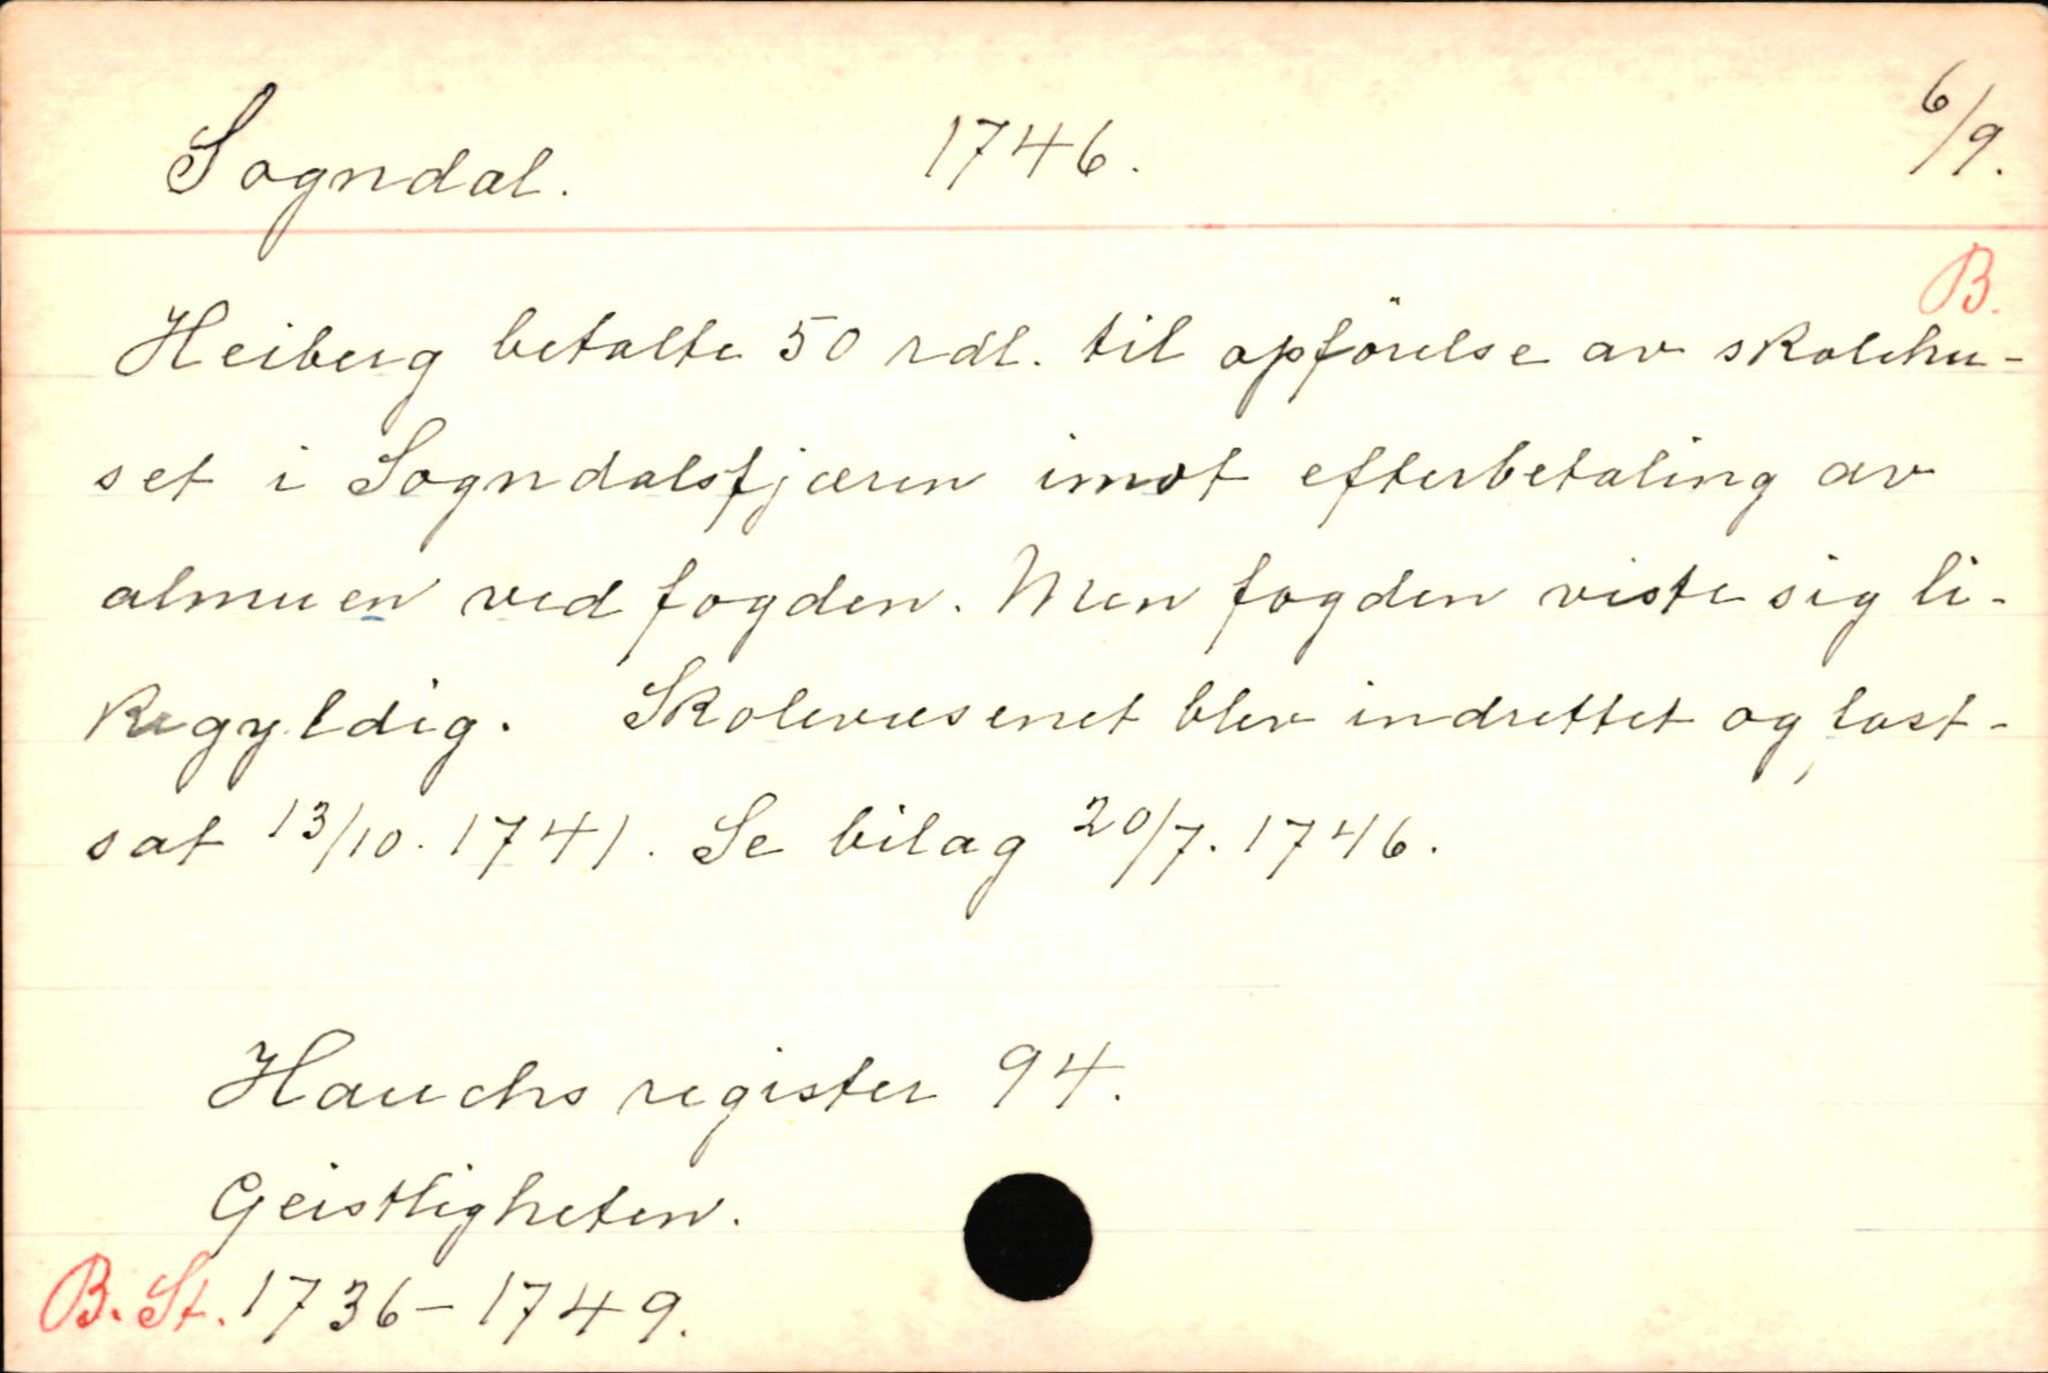 Sogndal. 1746. 6/9.
B.
Heiberg betalte 50 rdl. til opförelse av skolehu-
set i Sogndalsfjæren imot efterbetaling av
almuen ved fogden. Men fogden viste sig li-
kegyldig. Skolevæsenet blev indrettet og fast-
sat 13/10. 1741. Se bilag 20/7. 1746.
Hauchs register 94.
Geistligheten.
B. St. 1736-1749.